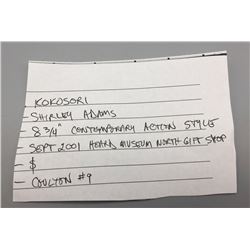 KOKOSORI
- SHIRLEY ADAMS
- 8 3/4" CONTEMPORARY ACTION STYLE
SEPT 2001 HEARD MUSEUM NORTH GIFT SHOP
- $
- COULTON #9